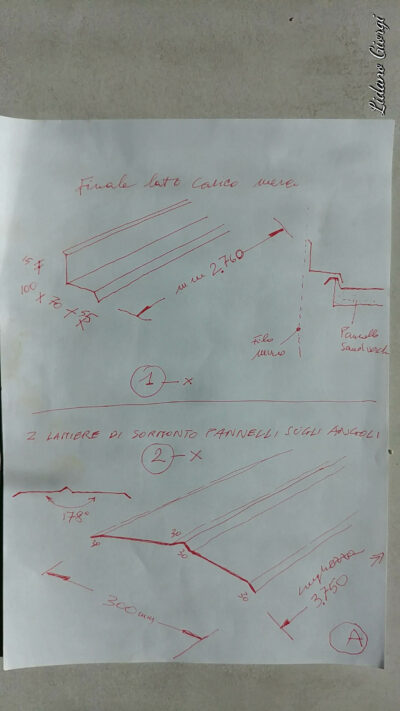 Lidano Giorgi
Finale lato carico merce
15
100
70
mm 2.760
Filo
muro
Pannello
Sandwich
1 - X
2 LAMIERE DI SORMONTO PANNELLI SUGLI ANGOLI
2 - X
178°
30
30
30
30
300 mm
lunghezza
3.750
A